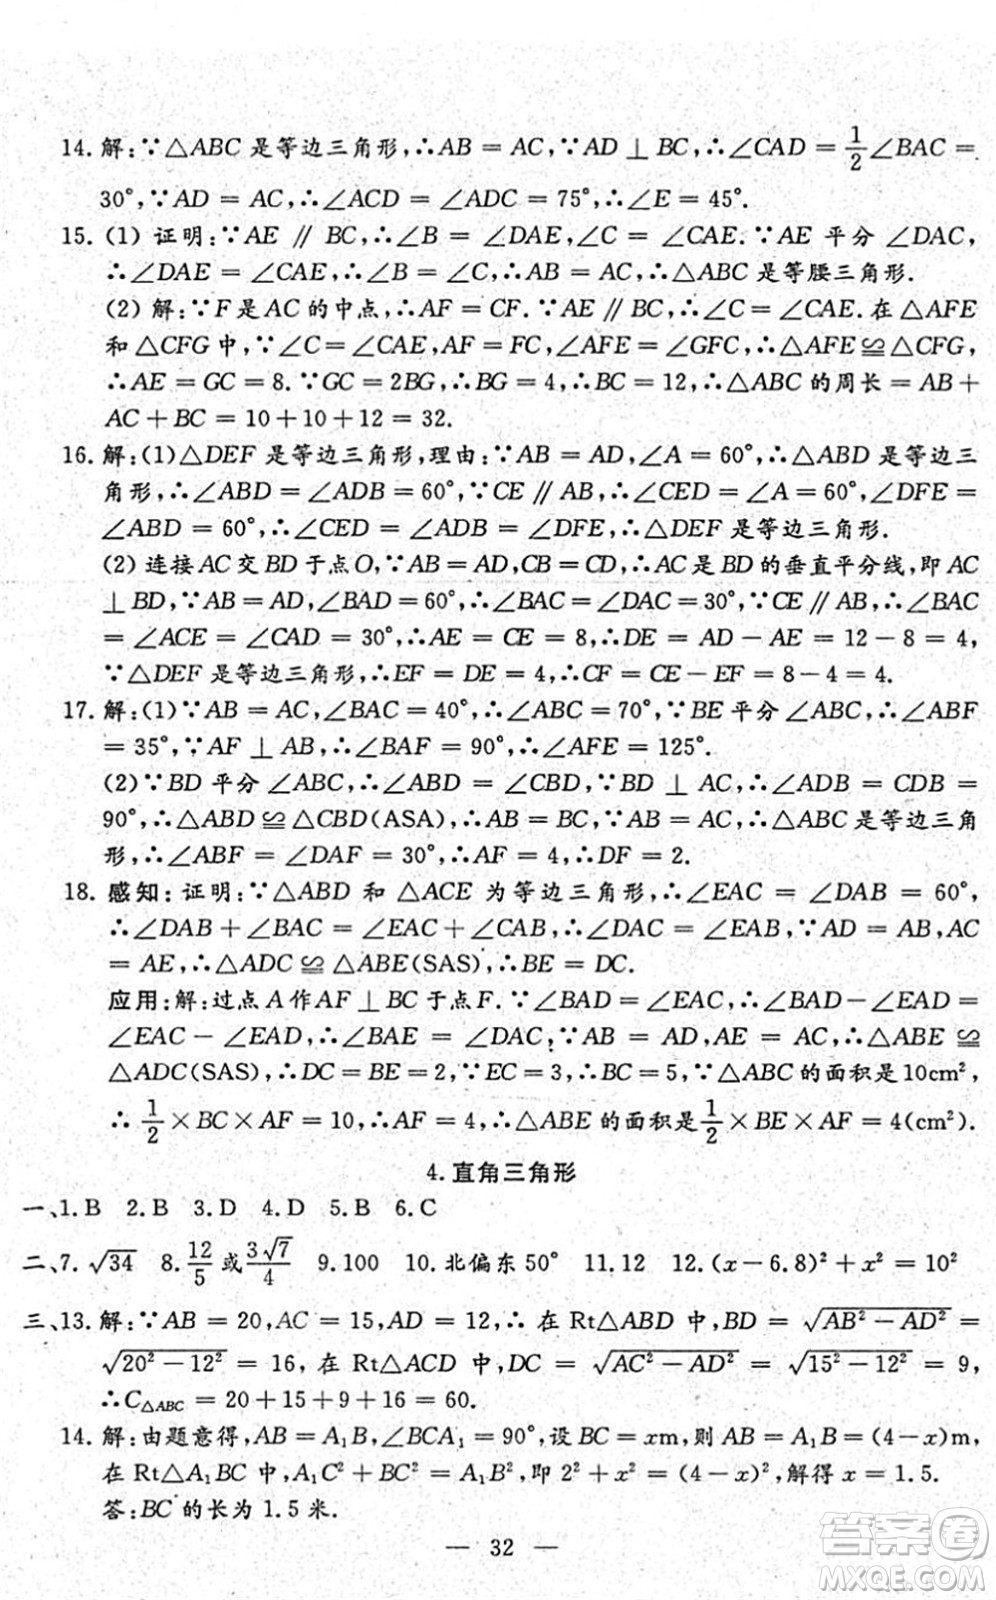 14. 解:∵△ABC 是等边三角形,∴AB = AC,∵AD ⊥ BC,∴∠CAD = 1/2∠BAC =
30°,∵AD = AC,∴∠ACD = ∠ADC = 75°,∴∠E = 45°.
15. (1) 证明:∵AE ∥ BC,∴∠B = ∠DAE,∠C = ∠CAE.∵AE 平分 ∠DAC,
∴∠DAE = ∠CAE,∴∠B = ∠C,∴AB = AC,∴△ABC 是等腰三角形.
(2) 解:∵F 是 AC 的中点,∴AF = CF.∵AE ∥ BC,∴∠C = ∠CAE.在 △AFE
和 △CFG 中,∵∠C = ∠CAE,AF = FC,∠AFE = ∠GFC,∴△AFE≌△CFG,
∴AE = GC = 8.∵GC = 2BG,∴BG = 4,∴BC = 12,∴△ABC 的周长 = AB +
AC + BC = 10 + 10 + 12 = 32.
16. 解:(1)△DEF 是等边三角形,理由:∵AB = AD,∠A = 60°,∴△ABD 是等边三
角形,∴∠ABD = ∠ADB = 60°,∵CE ∥ AB,∴∠CED = ∠A = 60°,∠DFE =
∠ABD = 60°,∴∠CED = ∠ADB = ∠DFE,∴△DEF 是等边三角形.
(2) 连接 AC 交 BD 于点 O,∵AB = AD,CB = CD,∴AC 是 BD 的垂直平分线,即 AC
⊥ BD,∵AB = AD,∠BAD = 60°,∴∠BAC = ∠DAC = 30°,∵CE ∥ AB,∴∠BAC
= ∠ACE = ∠CAD = 30°,∴AE = CE = 8,∴DE = AD − AE = 12 − 8 = 4,
∵△DEF 是等边三角形,∴EF = DE = 4,∴CF = CE − EF = 8 − 4 = 4.
17. 解:(1)∵AB = AC,∠BAC = 40°,∴∠ABC = 70°,∵BE 平分 ∠ABC,∴∠ABF
= 35°,∵AF ⊥ AB,∴∠BAF = 90°,∴∠AFE = 125°.
(2)∵BD 平分 ∠ABC,∴∠ABD = ∠CBD,∵BD ⊥ AC,∴∠ADB = CDB =
90°,∴△ABD ≌ △CBD(ASA),∴AB = BC,∵AB = AC,∴△ABC 是等边三角
形,∴∠ABF = ∠DAF = 30°,∴AF = 4,∴DF = 2.
18. 感知:证明:∵△ABD 和 △ACE 为等边三角形,∴∠EAC = ∠DAB = 60°,
∴∠DAB + ∠BAC = ∠EAC + ∠CAB,∴∠DAC = ∠EAB,∵AD = AB,AC
= AE,∴△ADC ≌ △ABE(SAS),∴BE = DC.
应用:解:过点 A 作 AF ⊥ BC 于点 F.∵∠BAD = ∠EAC,∴∠BAD − ∠EAD =
∠EAC − ∠EAD,∴∠BAE = ∠DAC,∵AB = AD,AE = AC,∴△ABE ≌
△ADC(SAS),∴DC = BE = 2,∵EC = 3,∴BC = 5,∵△ABC 的面积是 10cm²,
∴ 1/2 × BC × AF = 10,∴AF = 4,∴△ABE 的面积是 1/2 × BE × AF = 4(cm²).
4. 直角三角形
一、1. B 2. B 3. D 4. D 5. B 6. C
二、7. √34 8. 12/5 或 3√7/4 9. 100 10. 北偏东 50° 11. 12 12. (x − 6.8)² + x² = 10²
三、13. 解:∵AB = 20,AC = 15,AD = 12,∴ 在 Rt△ABD 中,BD = √(AB² − AD²) =
√(20² − 12²) = 16, 在 Rt△ACD 中,DC = √(AC² − AD²) = √(15² − 12²) = 9,
∴C△ABC = 20 + 15 + 9 + 16 = 60.
14. 解:由题意得,AB = A₁B,∠BCA₁ = 90°,设 BC = xm,则 AB = A₁B = (4 − x)m,
在 Rt△A₁BC 中,A₁C² + BC² = A₁B²,即 2² + x² = (4 − x)²,解得 x = 1.5.
答:BC 的长为 1.5 米.
— 32 —
答案圈
MXQE.COM